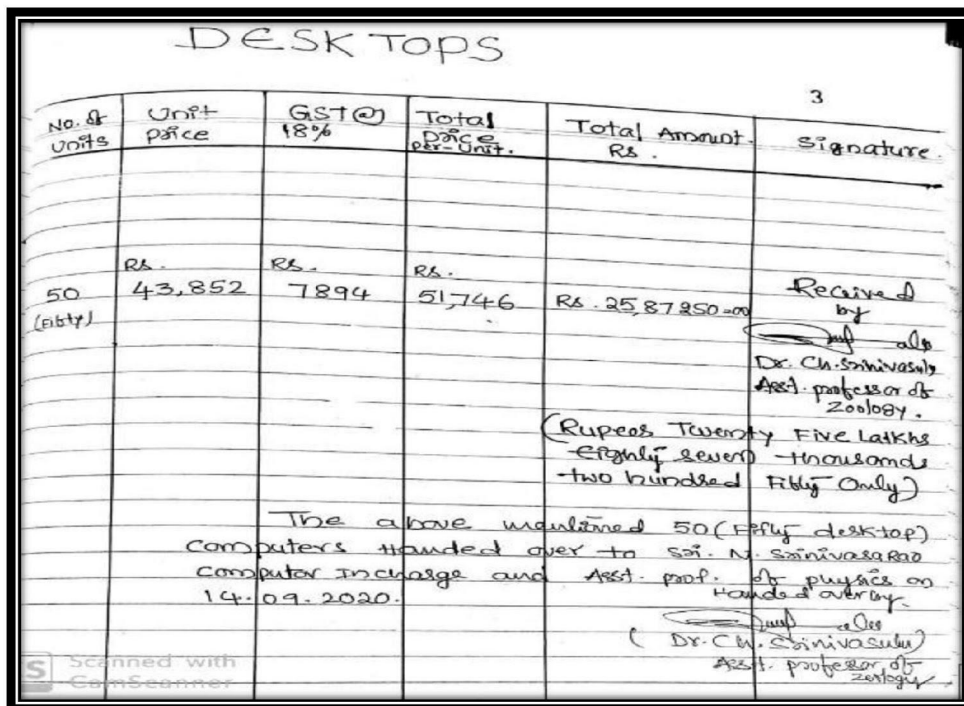 DESKTOPS
3
No. of Units
Unit Price
GST @ 18%
Total Price per-Unit.
Total Amount. Rs.
Signature.
Rs.
Rs.
Rs.
50 43,852 7894 51,746 Rs. 25,87250=00 Received
(Fifty) by
Dr. Ch. Srinivasulu
Asst. professor of
Zoology.
(Rupees Twenty Five Lakhs
Eighty seven thousands
two hundred Fifty Only)
The above mentioned 50 (Fifty desk-top)
Computers Handed over to Sri. N. Srinivasa Rao
Computer Incharge and Asst. prof. of physics on
14.09.2020. Handed over by.
(Dr. Ch. Srinivasulu)
Asst. professor of
Zoology
S Scanned with
CamScanner